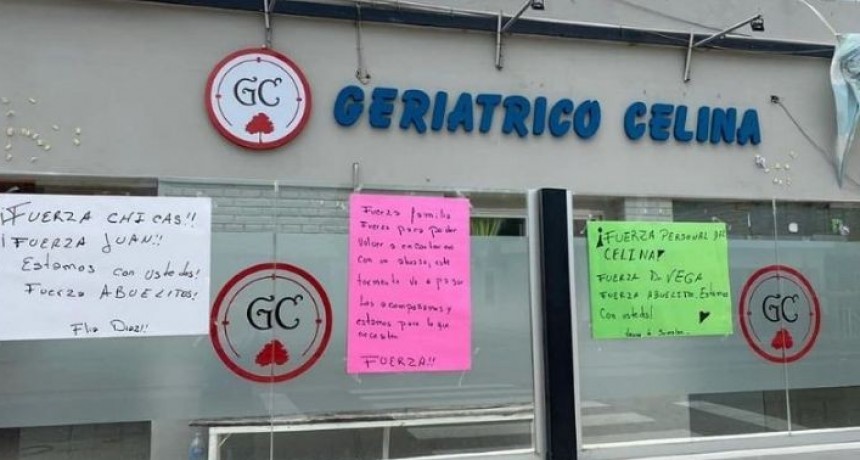 GC
GERIATRICO CELINA
¡FUERZA CHICAS!!
¡FUERZA JUAN!!
Estamos con ustedes!
FUERZA ABUELITOS!
Flia Diaz!!
Fuerza familia
Fuerza para poder
volver a encontrarnos
con un abrazo, esta
tormenta va a pasar
Los acompañamos y
estamos para lo que
necesiten
FUERZA!!
¡FUERZA PERSONAL DEL
CELINA!
FUERZA D. VEGA
FUERZA ABUELITO, Estamos
Con ustedes!
GC
GC